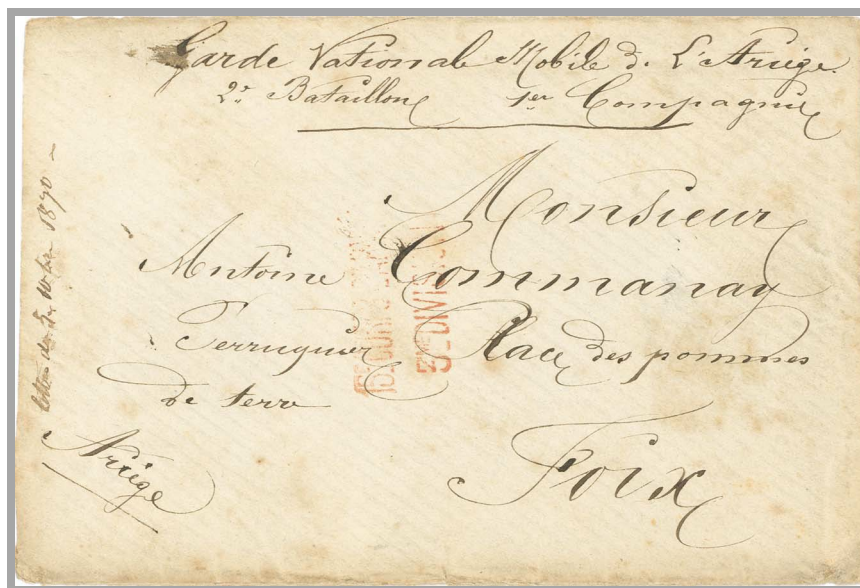 Garde Nationale Mobile de L'Ariége.
2e Bataillon 1er Compagnie
Monsieur
Antoine Commanay
Perruquier Place des pommes
de terre
Ariége
Foix
5me DIVISION
1870